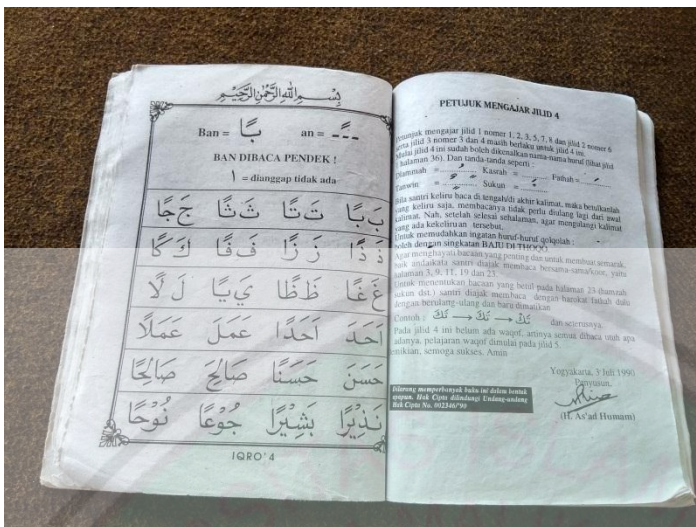 بِسْمِ اللهِ الرَّحْمٰنِ الرَّحِيْمِ
Ban = بًا an = ـًـ
BAN DIBACA PENDEK !
ا = dianggap tidak ada
بَ بًا تَ تًا ثَ ثًا جَ جًا
دَ دًا زَ زًا فَ فًا كَ كًا
غَ غًا ظَ ظًا يَ يًا لَ لًا
اَحَدَ اَحَدًا عَمَلَ عَمَلًا
حَسَنَ حَسَنًا صَالِحَ صَالِحًا
نَذِيْرًا بَشِيْرًا جُوْعًا نُوْحًا
IQRO' 4
PETUJUK MENGAJAR JILID 4
Petunjuk mengajar jilid 1 nomer 1, 2, 3, 5, 7, 8 dan jilid 2 nomer 6
serta jilid 3 nomer 3 dan 4 masih berlaku untuk jilid 4 ini.
Mulai jilid 4 ini sudah boleh dikenalkan nama-nama huruf (lihat jilid
halaman 36). Dan tanda-tanda seperti :
Dlammah = Kasrah = Fathah =
Tanwin: = Sukun =
Bila santri keliru baca di tengah/di akhir kalimat, maka betulkanlah
yang keliru saja, membacanya tidak perlu diulang lagi dari awal
kalimat. Nah, setelah selesai sehalaman, agar mengulangi kalimat
yang ada kekeliruan tersebut.
Untuk memudahkan ingatan huruf-huruf qolqolah :
boleh dengan singkatan BAJU DI THOQO.
Agar menghayati bacaan yang penting dan untuk membuat semarak,
baik andaikata santri diajak membaca bersama-sama/koor, yaitu
halaman 3, 9, 11, 19 dan 23.
Untuk menentukan bacaan yang betul pada halaman 23 (hamzah
sukun dst.) santri diajak membaca dengan harokat fathah dulu
dengan berulang-ulang dan baru dimatikan
Contoh : dan seterusnya.
Pada jilid 4 ini belum ada waqof, artinya semua dibaca utuh apa
adanya, pelajaran waqof dimulai pada jilid 5.
Demikian, semoga sukses. Amin
Yogyakarta, 3 Juli 1990
Penyusun,
(H. As'ad Humam)
Dilarang memperbanyak buku ini dalam bentuk
apapun. Hak Cipta dilindungi Undang-undang
Hak Cipta No. 002346/'90